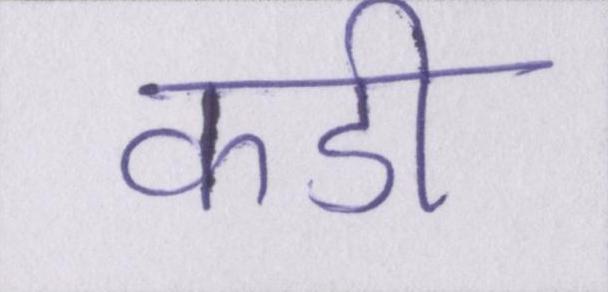 कडी